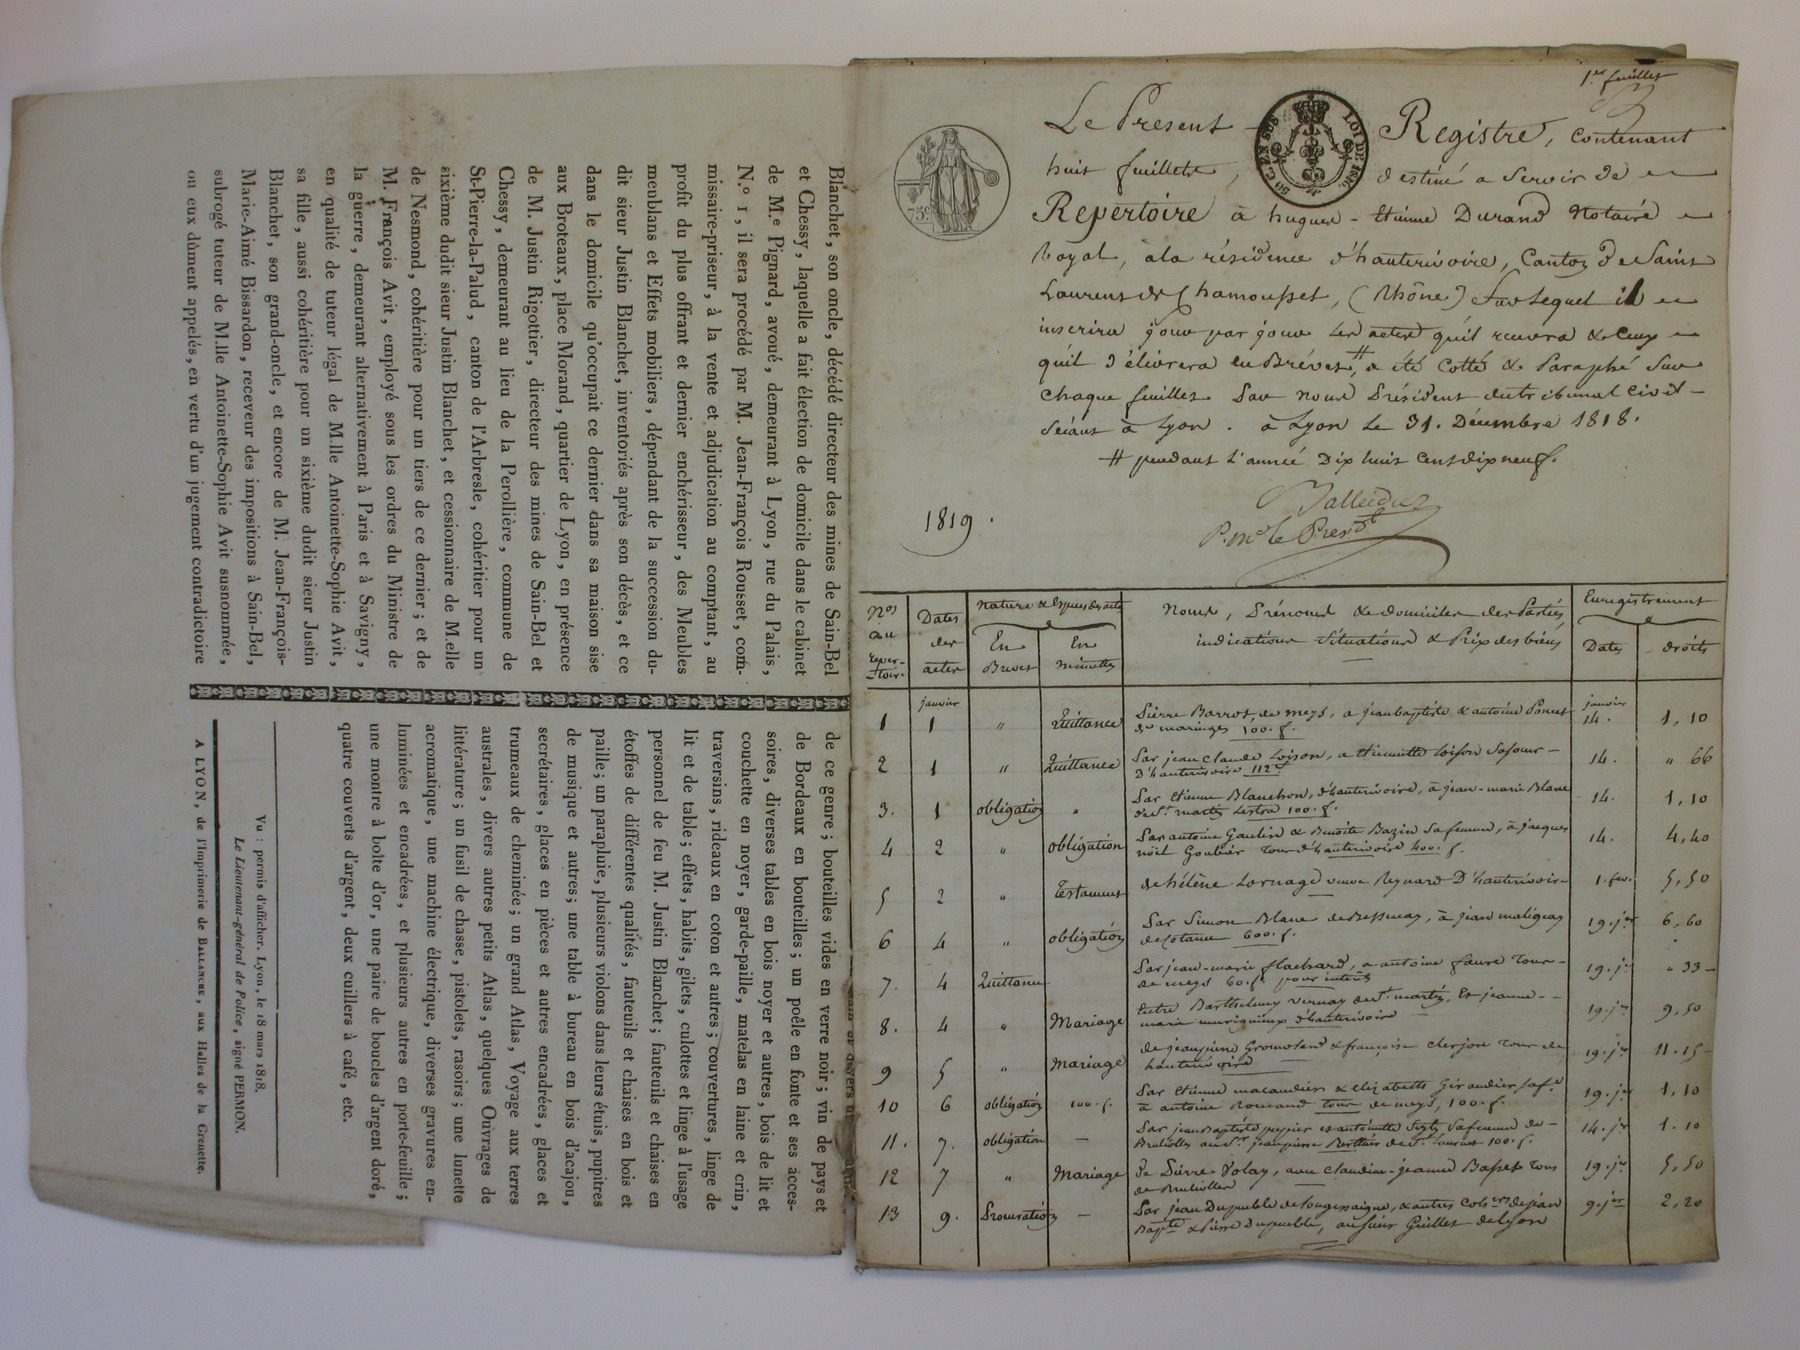 Blanchet, son oncle, décédé directeur des mines de Sain-Bel
et Chessy, laquelle a fait élection de domicile dans le cabinet
de M.e Pignard, avoué, demeurant à Lyon, rue du Palais,
N.o 1, il sera procédé par M. Jean-François Rousset, com-
missaire-priseur, à la vente et adjudication au comptant, au
profit du plus offrant et dernier enchérisseur, des Meubles
meublans et Effets mobiliers, dépendant de la succession du-
dit sieur Justin Blanchet, inventoriés après son décès, et ce
dans le domicile qu'occupait ce dernier dans sa maison sise
aux Broteaux, place Morand, quartier de Lyon, en présence
de M. Justin Rigottier, directeur des mines de Sain-Bel et
Chessy, demeurant au lieu de la Perollière, commune de
St-Pierre-la-Palud, canton de l'Arbresle, cohéritier pour un
sixième dudit sieur Justin Blanchet, et cessionnaire de M.elle
de Nesmond, cohéritière pour un tiers de ce dernier; et de
M. François Avit, employé sous les ordres du Ministre de
la guerre, demeurant alternativement à Paris et à Savigny,
en qualité de tuteur légal de M.lle Antoinette-Sophie Avit,
sa fille, aussi cohéritière pour un sixième dudit sieur Justin
Blanchet, son grand-oncle, et encore de M. Jean-François-
Marie-Aimé Bissardon, receveur des impositions à Sain-Bel,
subrogé tuteur de M.lle Antoinette-Sophie Avit susnommée,
ou eux dûment appelés, en vertu d'un jugement contradictoire
de ce genre; bouteilles vides en verre noir; vin de pays et
de Bordeaux en bouteilles; un poêle en fonte et ses acces-
soires, diverses tables en bois noyer et autres, bois de lit et
couchette en noyer, garde-paille, matelas en laine et crin,
traversins, rideaux en coton et autres; couvertures, linge de
lit et de table; effets, habits, gilets, culottes et linge à l'usage
personnel de feu M. Justin Blanchet; fauteuils et chaises en
étoffes de différentes qualités, fauteuils et chaises en bois et
paille; un parapluie, plusieurs violons dans leurs étuis, pupitres
de musique et autres; une table à bureau en bois d'acajou,
secrétaires, glaces en pièces et autres encadrées, glaces et
trumeaux de cheminée; un grand Atlas, Voyage aux terres
australes, divers autres petits Atlas, quelques Ouvrages de
littérature; un fusil de chasse, pistolets, rasoirs; une lunette
acromatique, une machine électrique, diverses gravures en-
luminées et encadrées, et plusieurs autres en porte-feuille;
une montre à boîte d'or, une paire de boucles d'argent doré,
quatre couverts d'argent, deux cuillers à café, etc.
Vu : permis d'afficher. Lyon, le 18 mars 1818.
Le Lieutenant-général de Police, signé PERMON.
A LYON, de l'Imprimerie de BALLANCHE, aux Halles de la Grenette.
1.er feuillet
Le Présent Registre, contenant
huit feuillets, destiné a Servir de
Répertoire à hugues-Etienne Durand Notaire
Royal, à la résidence d'hauterivoire, Canton de Saint
Laurent de Chamousset, (Rhône) Sur Lequel il
inscrira jour par jour les actes qu'il recevra & Ceux
qu'il délivrera en Brévet, # a été Cotté & Paraphé Sur
chaque feuillet Par nous Président du tribunal Civil
Séant à Lyon. à Lyon Le 31. Décembre 1818.
# pendant L'année Dix huit Cent dix neuf.
P. Mr le Presidt
75c
LOI DE 1816.
1819.
Nos au Reper-toire
Dates des actes
Nature & Especes des actes
En Brevet
En minuttes
Noms, Prénoms & domiciles des Parties,
indications Situations & Prix des biens
Enregistrement
Dates
droits
1 janvier 1 " Quittance Pierre Barrot, de meys, a jean baptiste & antoine Poncet de maringes 100. f. janvier 14. 1, 10
2 1 " Quittance Par jean Claude Loison, a Etiennette Loison Sa Soeur D'hauterivoire 112 f 14. " 66
3. 1 obligation " Par Etienne Blanchon, d'hauterivoire, à jean-marie Blanc de St martin Lestra 100. f. 14. 1, 10
4 2 " obligation Par antoine Gaulin & Benoite Bazin Sa femme, à jacques noël Goubier tous d'hauterivoire 400. f. 14. 4, 40
5 2 " Testament de hélène Lornage veuve Reynard D'hauterivoire 1. fev. 5, 50
6 4 " obligation Par Simon Blanc de Bessenay, à jean maligeay 600. f. 19. jer 6, 60
7. 4 Quittance Par jean-marie flachard, a antoine faure tous de meys 60. f. pour intérêts 19. jr " 33
8. 4 " Mariage Entre Barthelemy vernay de St martin, Et jeanne-marie d'hauterivoire 19. jr 9, 50
9 5 " Mariage de jean pierre & françoise tous de hauterivoire 19. jr 11. 15
10 6 obligation 100. f. Par Etienne macaudier & Elizabeth Giraudier Sa fe à antoine tous de meys, 100. f. 19. jr 1, 10
11. 7. obligation - Par jean Baptiste & antoinette Sa femme de Brulioles au Sr jean pierre Berthier de St Laurent 100. f. 14. jr 1. 10
12 7 " Mariage de Pierre Volay, avec Claudine-jeanne Basset tous de Brulioles 19. jr 5, 50
13 9. Procuration - Par jean Dupuble de Longessaigne, & autres Cohers de jean Bapte & Pierre Dupuble, au Sieur Guillet de Lyon 9. jer 2, 20